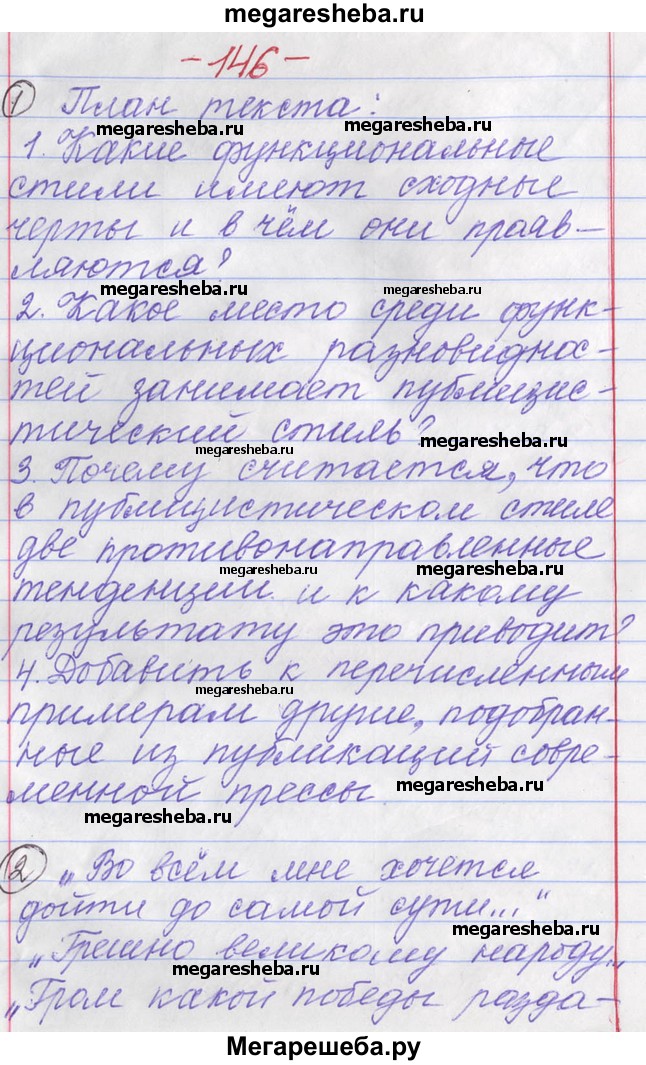 megaresheba.ru
-146-
1 План текста:
megaresheba.ru
megaresheba.ru
1. Какие функциональные
стили имеют сходные
черты и в чём они прояв-
ляются?
megaresheba.ru
megaresheba.ru
2. Какое место среди функ-
циональных разновиднос-
тей занимает публицис-
тический стиль?
megaresheba.ru
3. Почему считается, что
в публицистическом стиле
две противонаправленные
megaresheba.ru
megaresheba.ru
тенденции и к какому
результату это приводит?
4. Добавить к перечисленным
megaresheba.ru
примерам другие, подобран-
ные из публикаций совре-
менной прессы
megaresheba.ru
megaresheba.ru
2 „Во всём мне хочется
дойти до самой сути..."
megaresheba.ru
„Грешно великому народу„
megaresheba.ru
„Гром какой победы разда-
Мегарешеба.ру